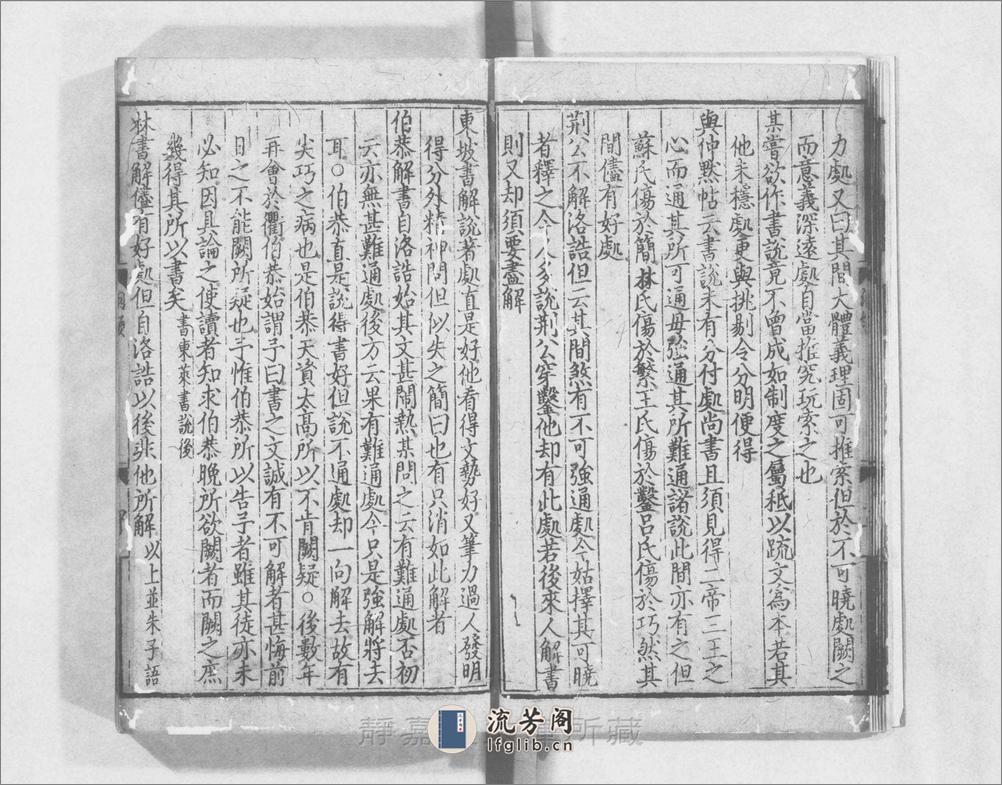 力處又曰其間大體義理固可推索但於不可曉處闕之
而意義深遠處自當推究玩索之也
某嘗欲作書說竟不曾成如制度之屬秪以疏文爲本若其
他未穩處更與挑剔令分明便得
與仲默帖云書說未有分付處尚書且須見得二帝三王之
心而通其所可通毋強通其所難通諸說此間亦有之但
蘇氏傷於簡林氏傷於繁王氏傷於鑿吕氏傷於巧然其
間儘有好處
荆公不解洛誥但云其間煞有不可強通處今姑擇其可曉
者釋之今人多說荆公穿鑿他却有此處若後來人解書
則又却須要盡解
東坡書解說著處直是好他看得文勢好又筆力過人發明
得分外精神問但似失之簡曰也有只消如此解者
伯恭解書自洛誥始其文甚閙熱某問之云有難通處否初
云亦無甚難通處後方云果有難通處今只是強解將去
耳○伯恭直是說得書好但說不通處却一向解去故有
尖巧之病也是伯恭天資太高所以不肯闕疑○後數年
再會於衢伯恭始謂予曰書之文誠有不可解者甚悔前
日之不能闕所疑也予惟伯恭所以告予者雖其徒亦未
必知因具論之使讀者知求伯恭晚所欲闕者而闕之庶
幾得其所以書矣書東萊書說後
林書解儘有好處但自洛誥以後非他所解以上並朱子語
靜嘉
所藏
流芳阁
lfglib.cn